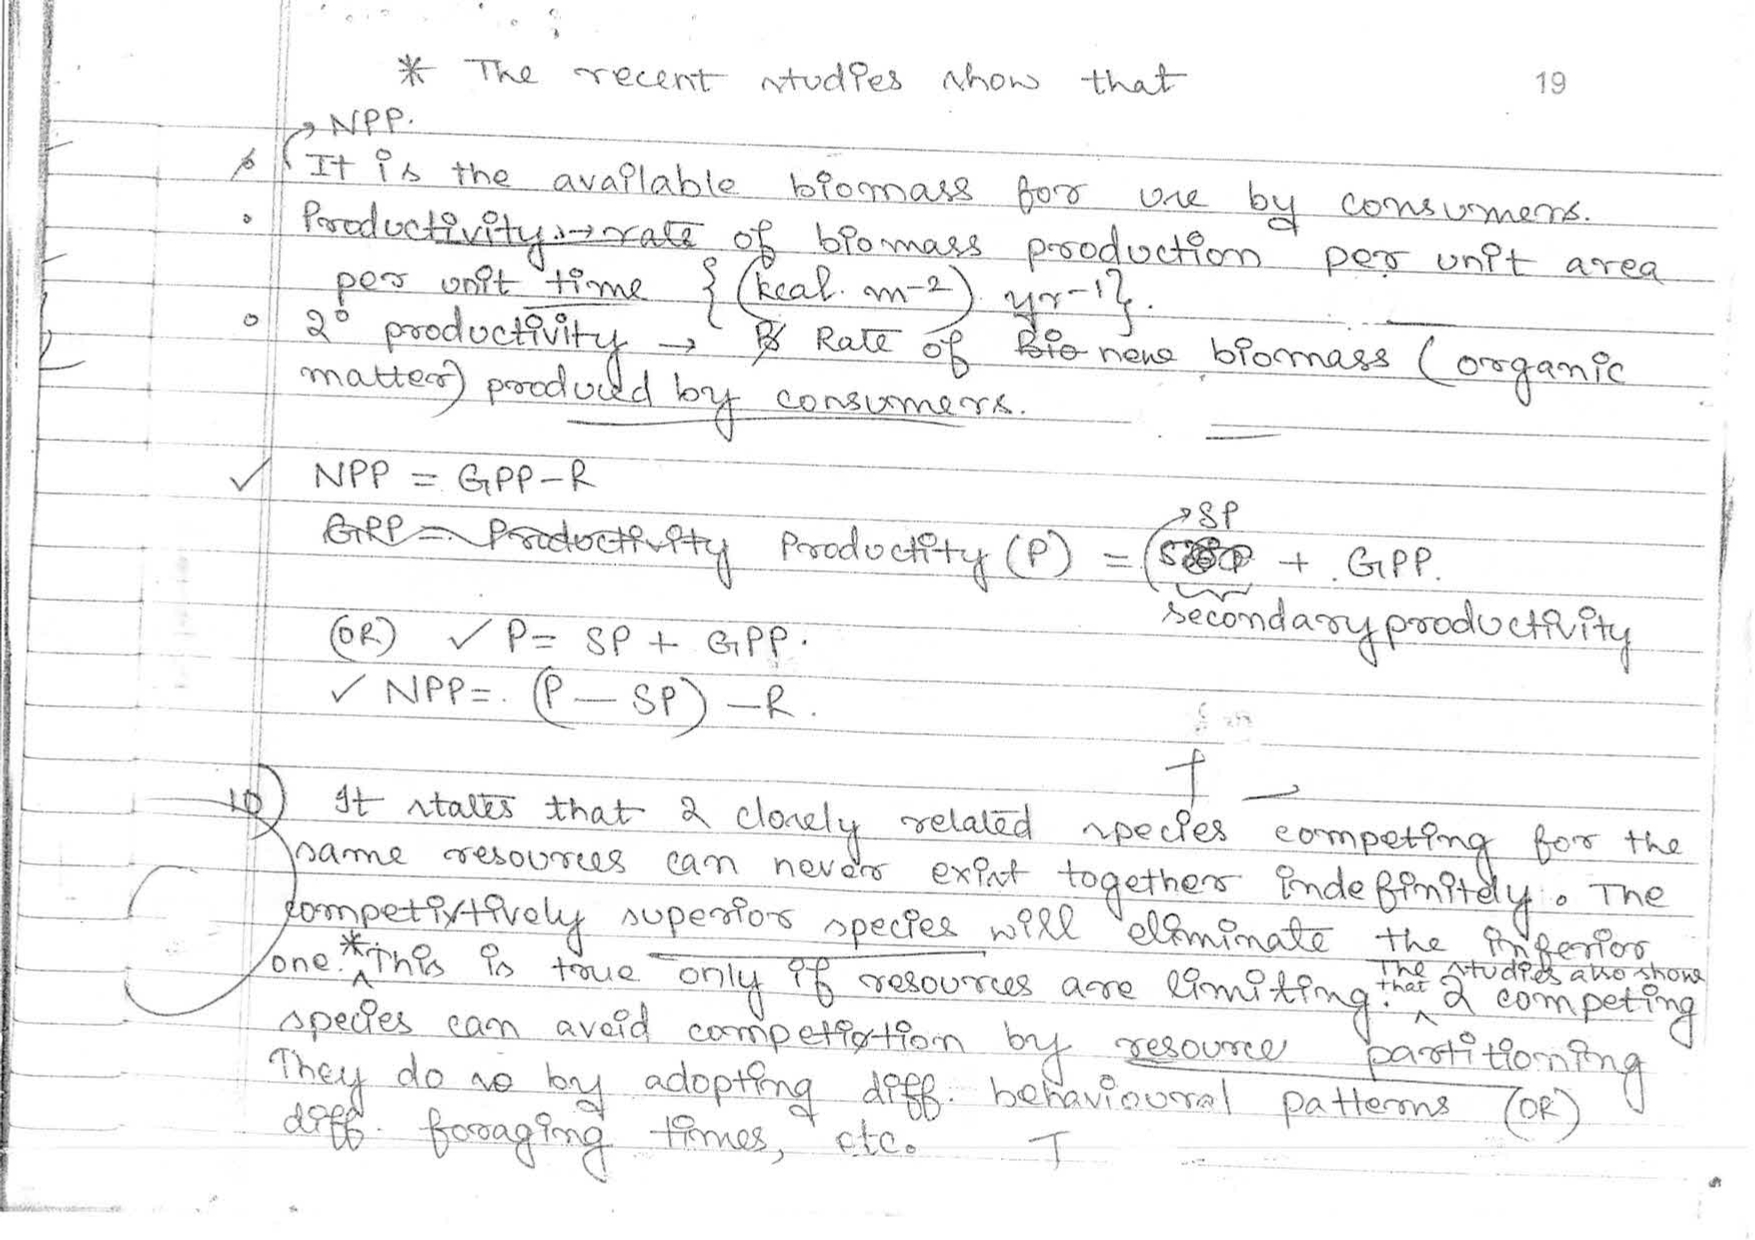 * The recent studies show that
19
→ NPP.
It is the available biomass for use by consumers.
Productivity :→ rate of biomass production per unit area
per unit time {(kcal. m-2) yr-1}.
2° productivity → Rate of Bio new biomass (organic
matter) produced by consumers.
✓ NPP = GPP-R
GPP = Productivity Productity (P) = (→SP + GPP.
secondary productivity
(OR) ✓ P= SP + GPP.
✓ NPP=. (P — SP) -R.
10) It states that 2 closely related species competing for the
same resources can never exist together indefinitely. The
competitively superior species will eliminate the inferior
one.* This is true only if resources are limiting. The studies also show that 2 competing
species can avoid competition by resource partitioning
They do so by adopting diff. behavioural patterns (OR)
diff. foraging times, etc.